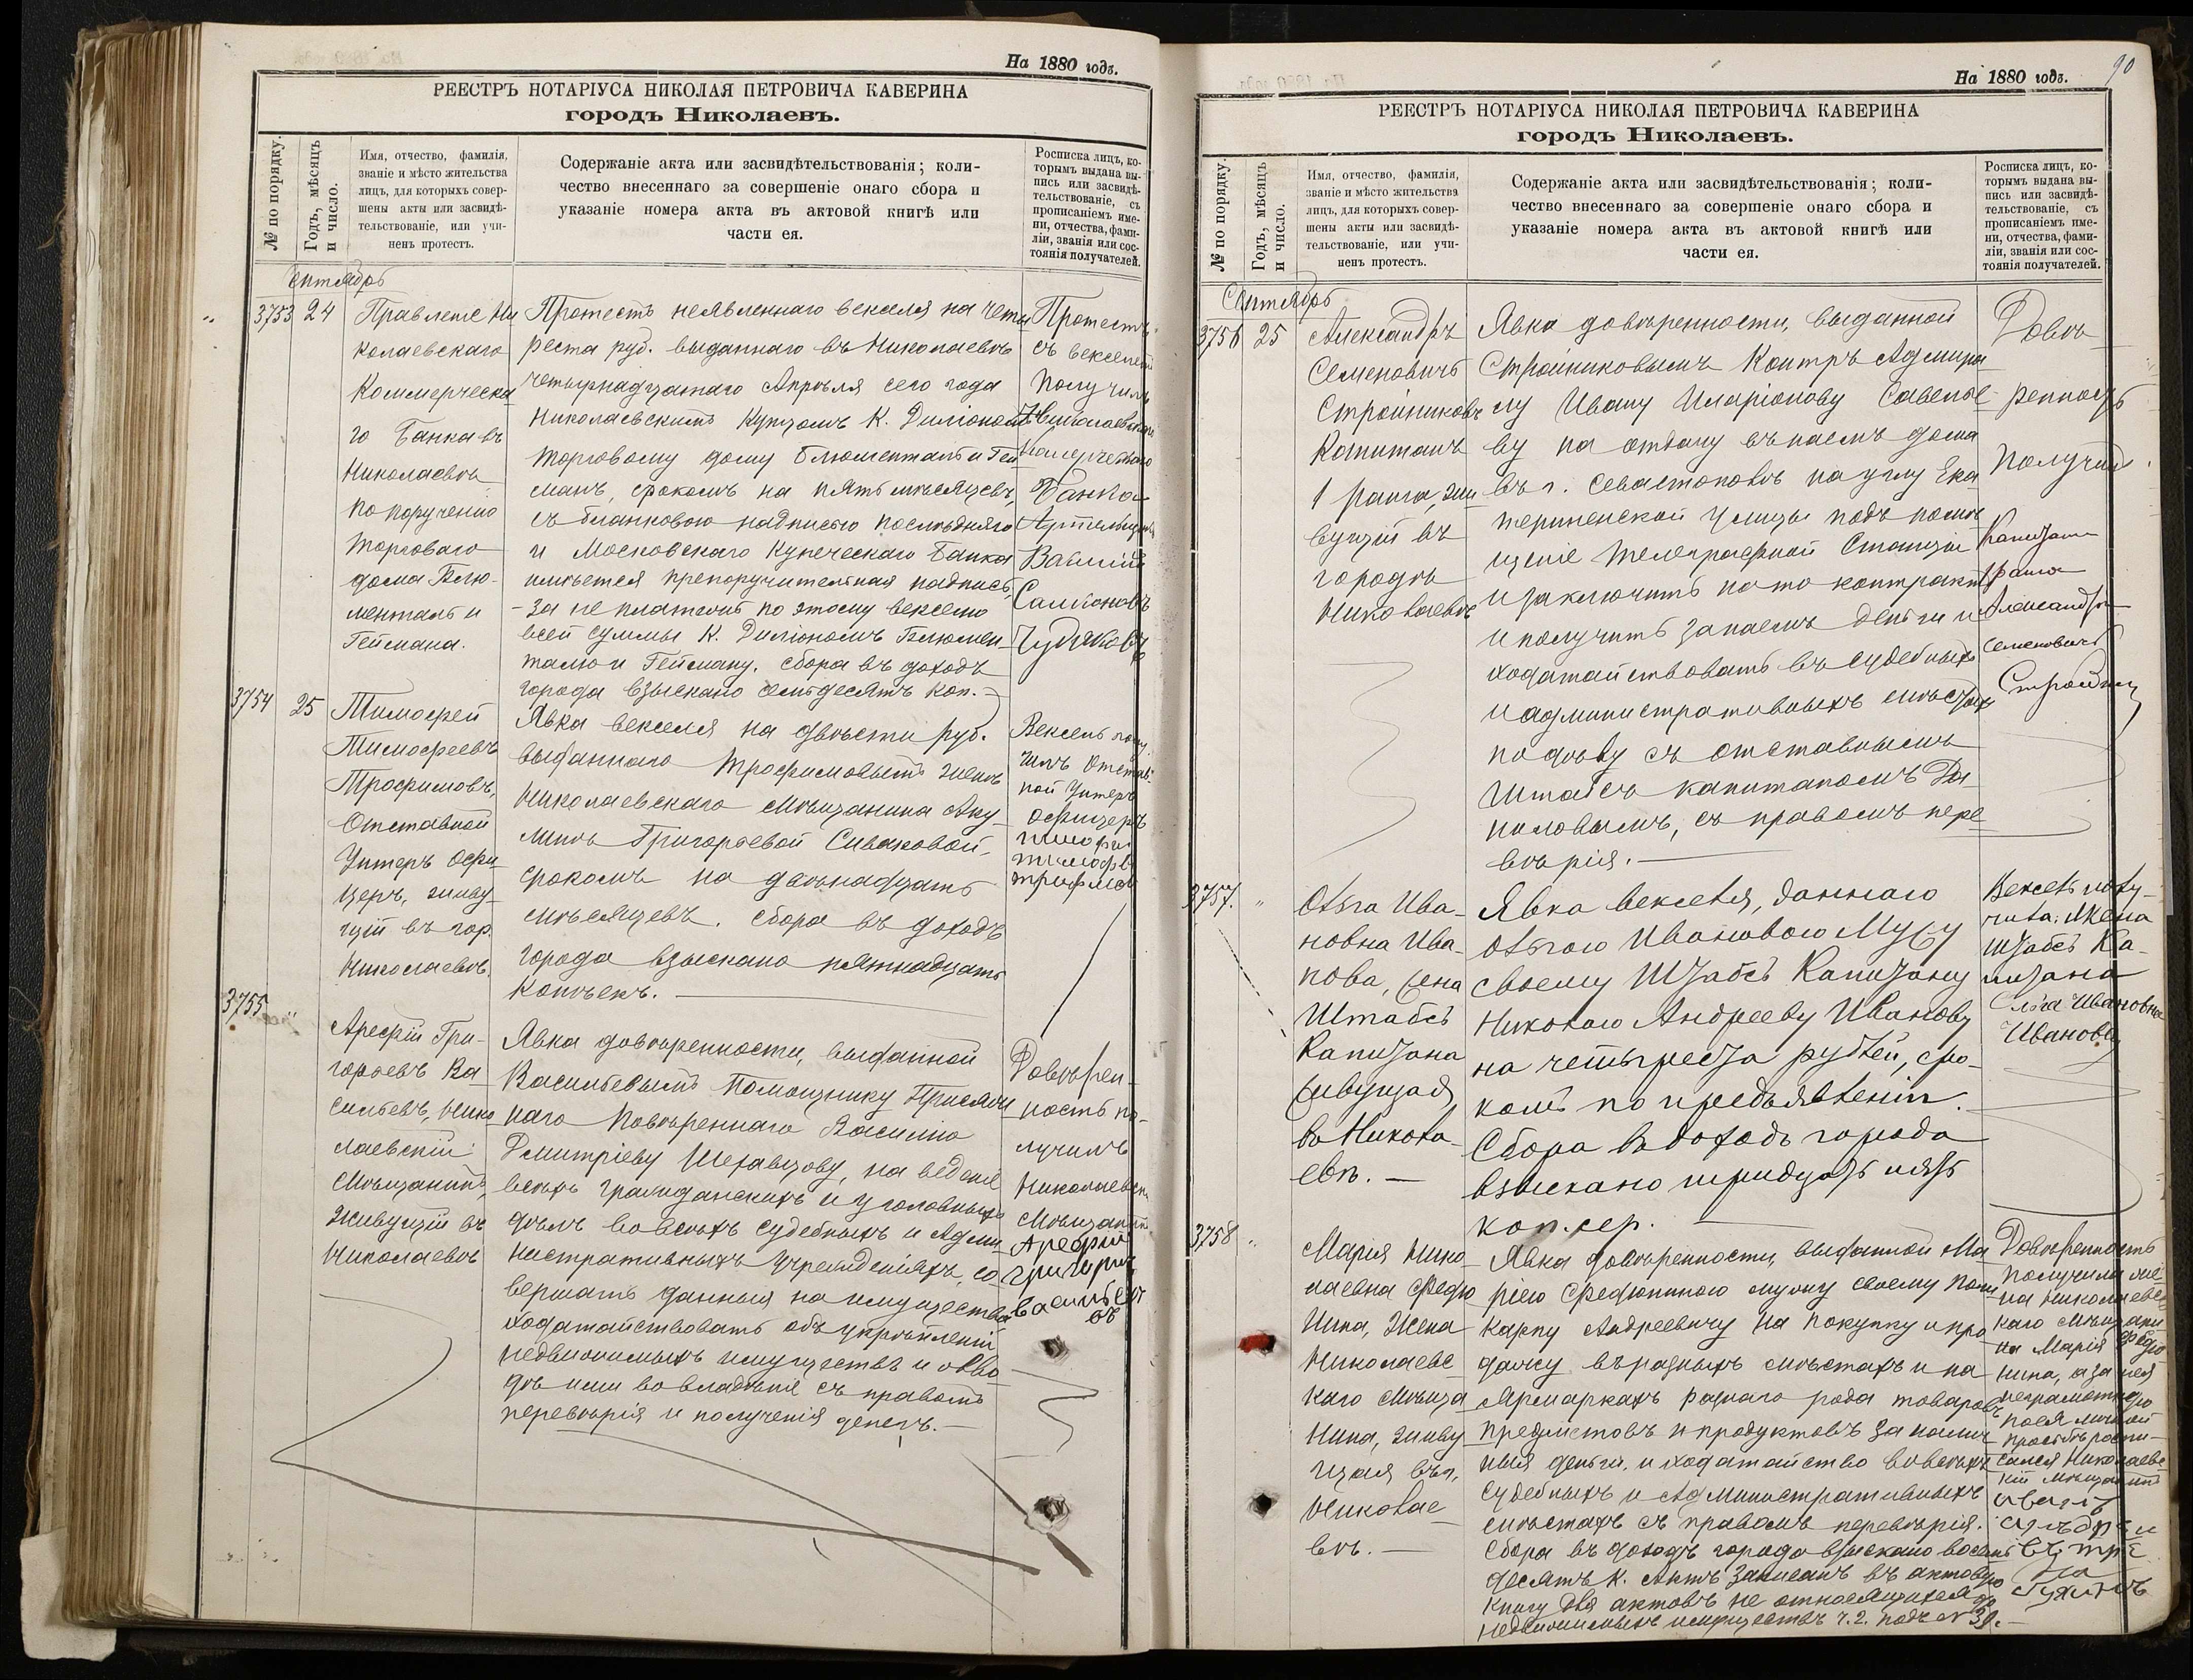 На 1880 годъ.
РЕЕСТРЪ НОТАРІУСА НИКОЛАЯ ПЕТРОВИЧА КАВЕРИНА
городъ Николаевъ.
№ по порядку.
Годъ, мѣсяцъ
и число.
Имя, отчество, фамилія,
званіе и мѣсто жительства
лицъ, для которыхъ совер-
шены акты или засвидѣ-
тельствованіе, или учи-
ненъ протестъ.
Содержаніе акта или засвидѣтельствованія; коли-
чество внесеннаго за совершеніе онаго сбора и
указаніе номера акта въ актовой книгѣ или
части ея.
Росписка лицъ, ко-
торымъ выдана вы-
пись или засвидѣ-
тельствованіе, съ
прописаніемъ име-
ни, отчества, фами-
ліи, званія или сос-
тоянія получателей.
Сентябрь
3753
24
Правленіе Ни
колаевскаго
Коммерческа
го Банка въ
Николаевѣ
по порученію
торговаго
дома Блю-
менталь и
Геймана.
Протестъ неявленнаго векселя на четы
реста руб. выданнаго въ Николаевѣ
четырнадцатаго Апрѣля сего года
Николаевскимъ Купцомъ К. Диліономъ
торговому дому Блюменталь и Гей
манъ, срокомъ на пять мѣсяцевъ,
съ бланковою надписью послѣдняго
и Московскаго Купеческаго Банка
имѣется препоручительная надпись,
- за не платежъ по этому векселю
всей суммы К. Диліономъ Блюмен-
талю и Гейману. Сбора въ доходъ
города взыскано семьдесятъ коп.-
Протестъ
съ векселемъ
получилъ
Николаевскаго
Комерческаго
Банка
Артельщикъ
Василій
Самсоновъ
Чудяковъ
3754
25
Тимофей
Тимофеевъ
Трофимовъ,
Отставной
Унтеръ Офи
церъ, живу
щій въ гор.
Николаевѣ.
Явка векселя на двѣсти руб.
выданнаго Трофимовымъ женѣ
Николаевскаго Мѣщанина Аку
линѣ Григорьевой Сиваковой,
срокомъ на двѣнадцать
мѣсяцевъ. Сбора въ доходъ
города взыскано пятнадцать
копѣекъ. -
Вексель полу
чилъ Отстав
ной Унтеръ
офицеръ
тимофей
тимофѣ
трофимов
3755
"
Арефій Гри-
горьевъ Ва
сильевъ, Нико
лаевскій
Мѣщанинъ,
живущій въ
Николаевѣ
Явка довѣренности, выданной
Васильевымъ Помощнику Присяж
наго Повѣреннаго Василію
Дмитріеву Шехавцову, на веденіе
всѣхъ гражданскихъ и уголовныхъ
дѣлъ во всѣхъ судебныхъ и Адми
нистративныхъ Учрежденіяхъ, со
вершать данныя на имущества
ходатайствовать объ укрѣпленіи
недвижимыхъ имуществъ и о вво
дѣ ими во владѣніе съ правомъ
перевѣрія и полученія денегъ.-
Довѣрен-
ность по-
лучилъ
Николаевск
Мѣщанинъ
Арефий
григорьев
василье
въ
На 1880 годъ.
90
РЕЕСТРЪ НОТАРІУСА НИКОЛАЯ ПЕТРОВИЧА КАВЕРИНА
городъ Николаевъ.
№ по порядку.
Годъ, мѣсяцъ
и число.
Имя, отчество, фамилія,
званіе и мѣсто жительства
лицъ, для которыхъ совер-
шены акты или засвидѣ-
тельствованіе, или учи-
ненъ протестъ.
Содержаніе акта или засвидѣтельствованія; коли-
чество внесеннаго за совершеніе онаго сбора и
указаніе номера акта въ актовой книгѣ или
части ея.
Росписка лицъ, ко-
торымъ выдана вы-
пись или засвидѣ-
тельствованіе, съ
прописаніемъ име-
ни, отчества, фами-
ліи, званія или сос-
тоянія получателей.
Сентябрь
3756
25
Александръ
Семеновичъ
Стройниковъ
Капитанъ
1 ранга, жи
вущій въ
городѣ
Николаевѣ
Явка довѣренности, выданной
Стройниковымъ Контръ Адмира
лу Ивану Иларіонову Савелье
ву на отдачу въ наемъ дома
въ г. Севастополѣ на углу Ека
терининской Улицы подъ помѣ
щеніе Телеграфной Станціи
и заключить на то контрактъ
и получить за наемъ деньги и
ходатайствовать въ судебныхъ
и административныхъ мѣстахъ
по дѣлу съ отставнымъ
Штабсъ капитаномъ Да
ниловымъ, съ правомъ пере
вѣрія. -
Довѣ
ренность
получилъ
Капитанъ
1 ранга
Александръ
Семеновичъ
Стройник
3757.
"
Ольга Ива-
новна Ива-
нова, жена
Штабсъ
Капитана
живущая
въ Никола-
евѣ. -
Явка векселя, даннаго
Ольгою Ивановою Мужу
своему Штабсъ Капитану
Николаю Андрееву Иванову
на четыреста рублей, сро-
комъ по предъявленіи.
Сбора въ доходъ города
взыскано тридцать пять
коп. сер.
Вексель полу-
чила: Жена
Штабсъ Ка-
питана
Ольга Ивановна
Иванова
3758
"
Марія Нико
лаевна Федю
нина, Жена
Николаевс
каго Мѣща
нина, живу
щая въ г.
Николае
вѣ. -
Явка довѣренности, выданной Ма
ріею Федюниною мужу своему Поли
карпу Андреевичу на покупку и про
дажу въ разныхъ мѣстахъ и на
Ярмаркахъ разнаго рода товаровъ
предметовъ и продуктовъ за налич
ныя деньги, и ходатайство во всѣхъ
Судебныхъ и Административныхъ
мѣстахъ съ правомъ перевѣрія.
Сбора въ доходъ города взыскано восемь
десятъ к. Актъ записанъ въ актовую
книгу для актовъ не относящихся до
недвижимыхъ имуществъ ч. 2. подъ № 39.-
Довѣренность
получила же-
на Николаевс
каго Мѣщани
на Марія Федю
нина, а за нея
неграмотную
по ея личной
просьбѣ роспи-
сался Николаевс
кій Мѣщанинъ